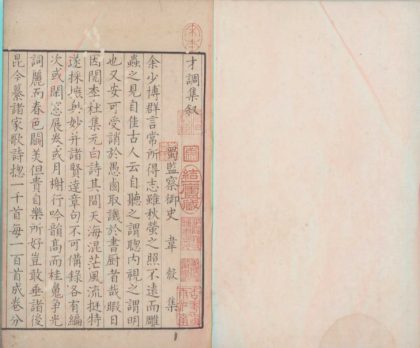 才調集叙
蜀監察御史 韋縠 集
余少博群言常所得志雖秋螢之照不遠而雕
蟲之見自佳古人云自聽之謂聰内視之謂明
也又安可受誚於愚鹵取譏於書廚者哉暇日
因閱李杜集元白詩其間天海混茫風流挺特
遂採摭奥妙并諸賢達章句不可備録各有編
次或閑窓展卷或月榭行吟韻高而桂魄争光
詞麗而春色鬬美但貴自樂所好豈敢垂諸後
昆今纂諸家歌詩揔一千首每一百首成卷分